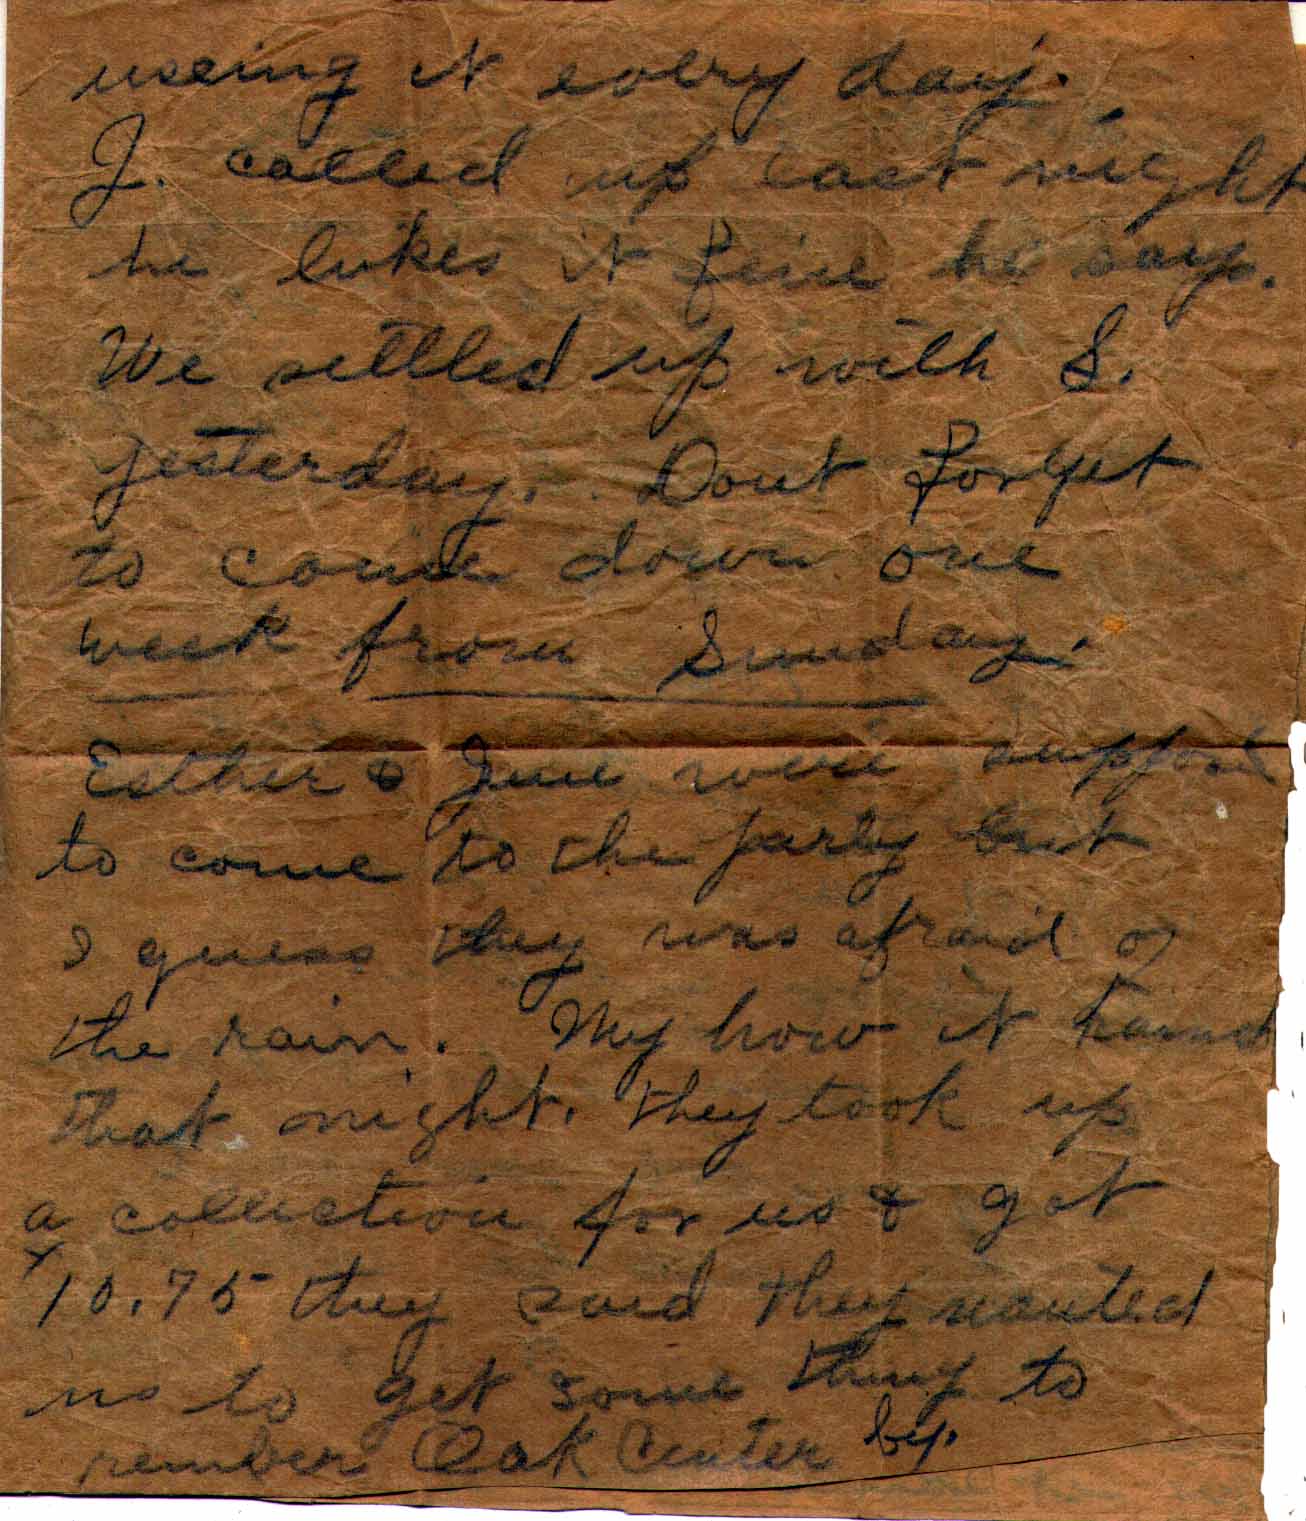 useing it every day.
J. called up last night
he likes it fine he says.
We settled up with S.
yesterday. Dont forget
to come down one
week from Sunday.
Esther & June were suppose
to come to the party but
I guess they was afraid of
the rain. My how it raind
that night. they took up
a collection for us & got
10.75 they said they wanted
us to get some thing to
rember Oak Center by.